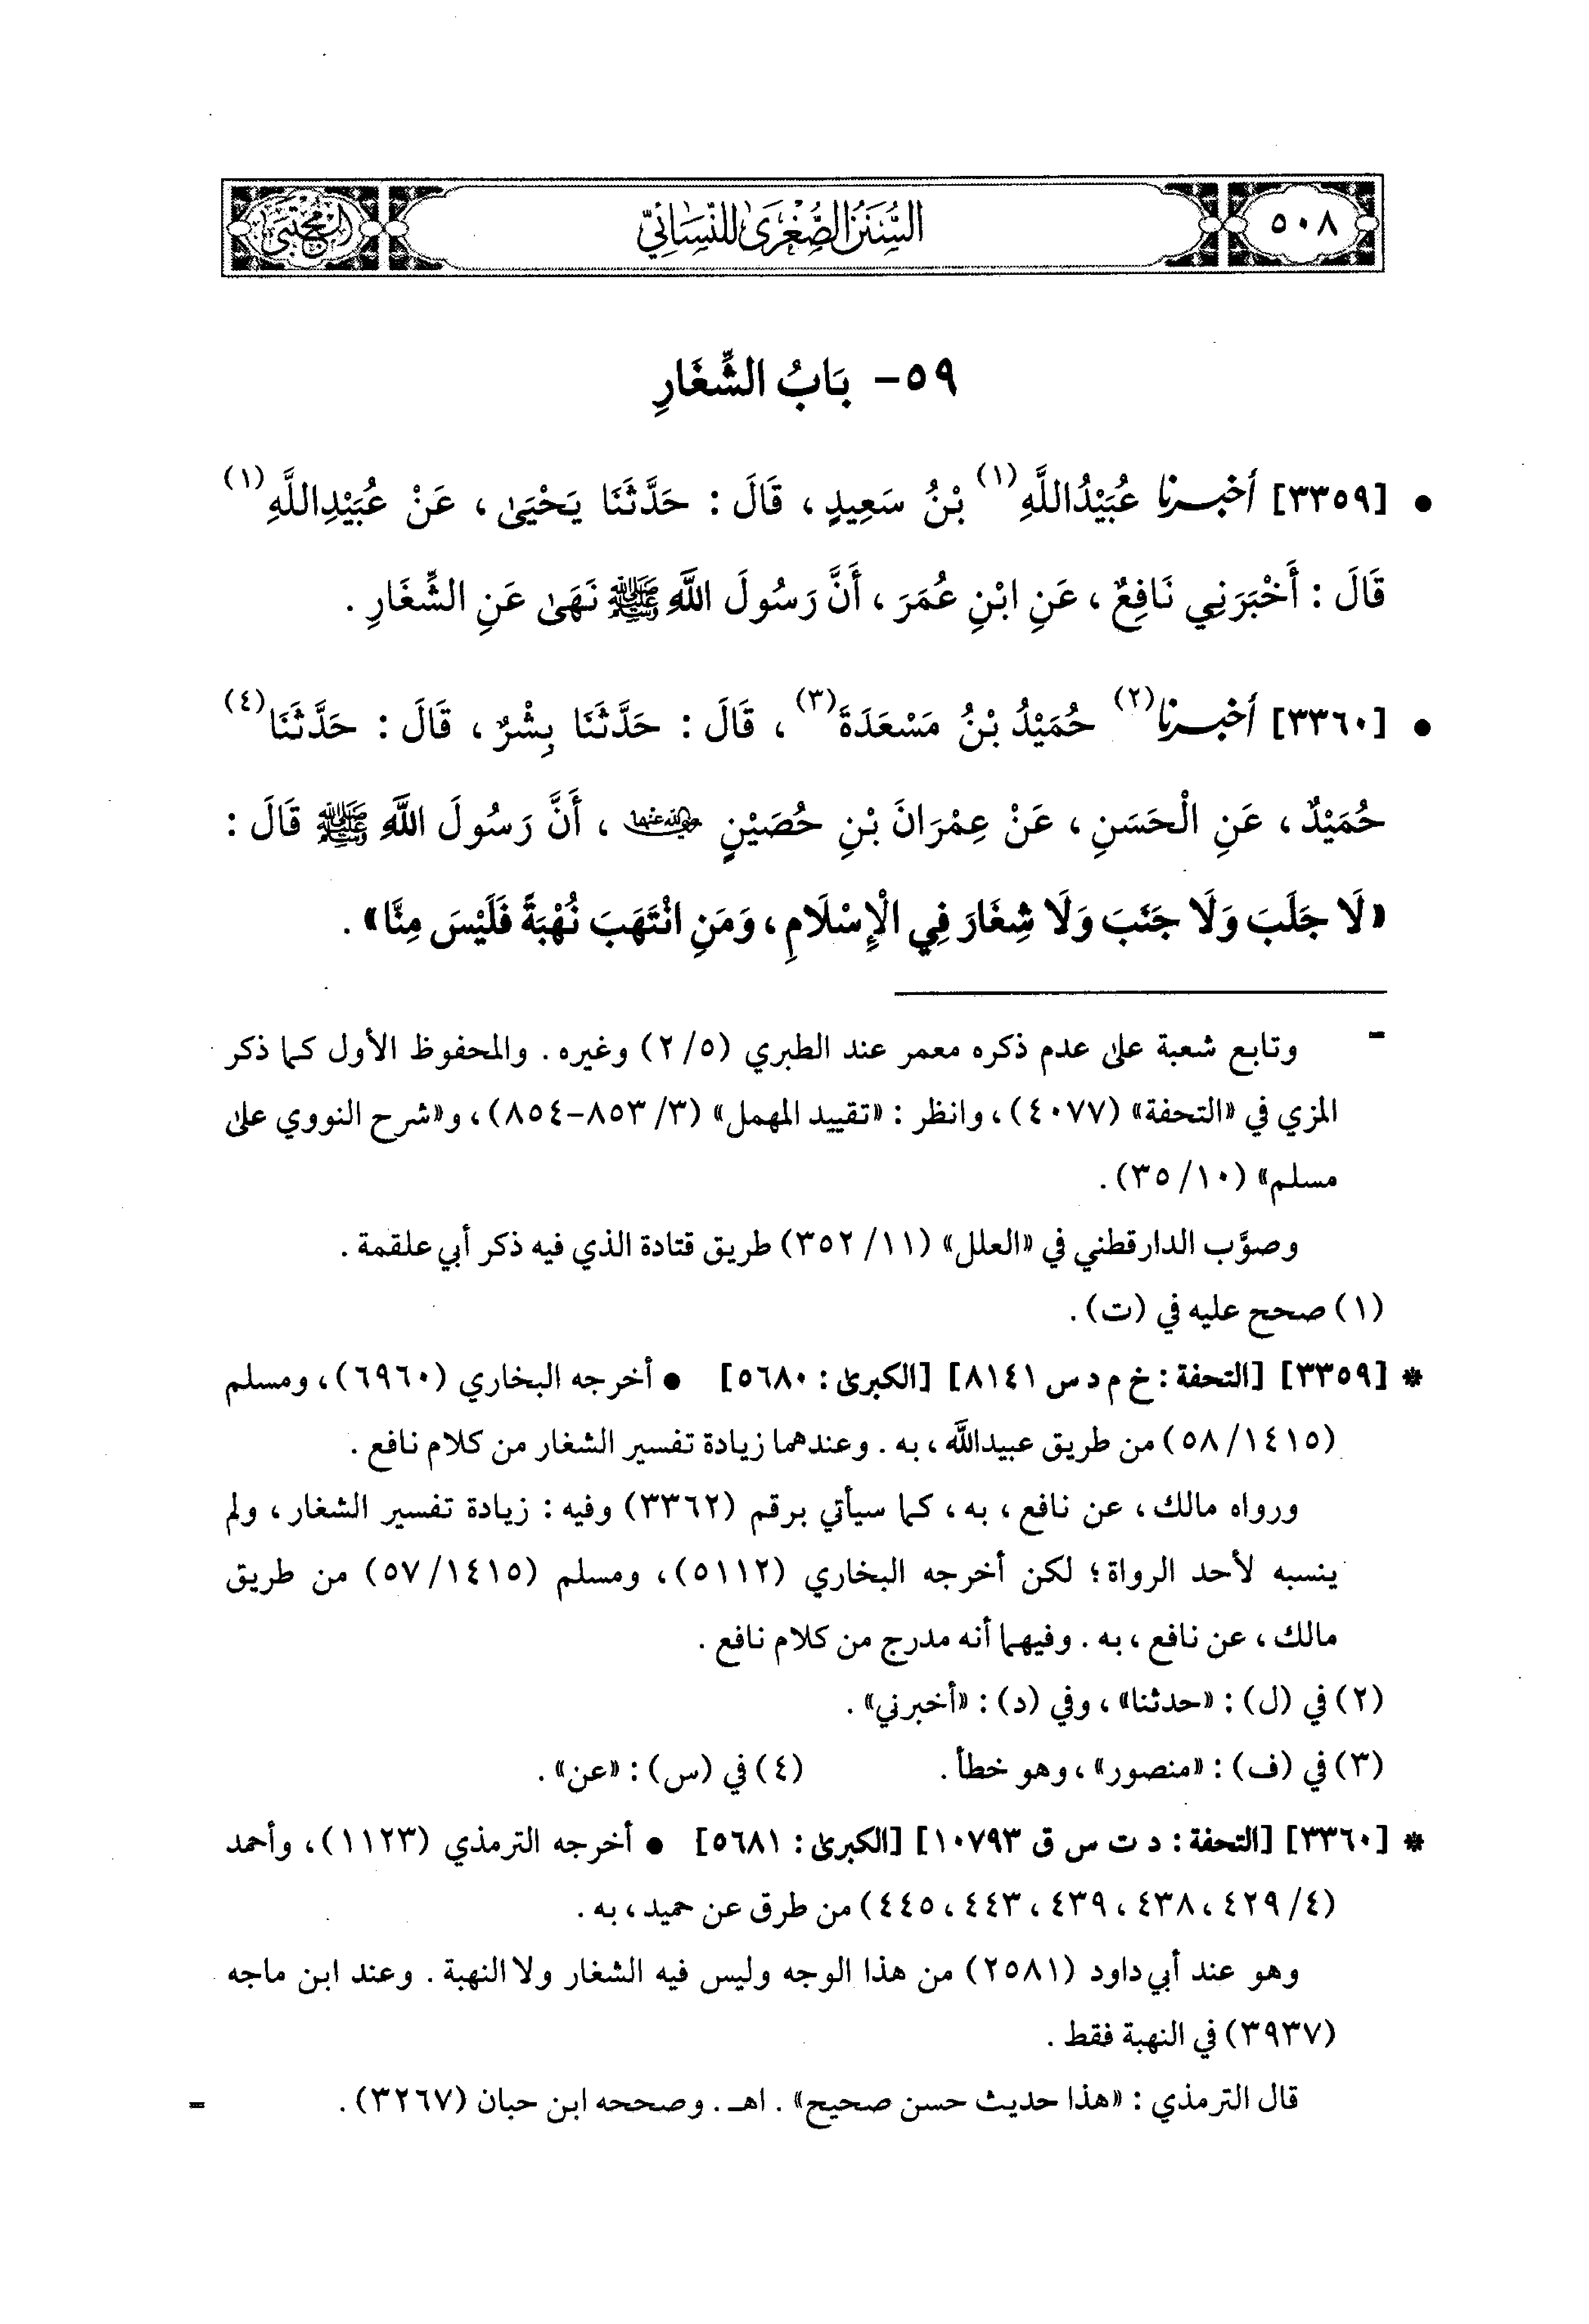 ٥٠٨ السُّنَنُ الصُّغْرَىٰ لِلنَّسَائِيِّ المجتبى
٥٩- بَابُ الشِّغَارِ
• [٣٣٥٩] أخبرنا عُبَيْدُاللَّهِ(١) بْنُ سَعِيدٍ، قَالَ : حَدَّثَنَا يَحْيَىٰ، عَنْ عُبَيْدِاللَّهِ(١)
قَالَ : أَخْبَرَنِي نَافِعٌ، عَنِ ابْنِ عُمَرَ، أَنَّ رَسُولَ اللَّهِ ﷺ نَهَىٰ عَنِ الشِّغَارِ .
• [٣٣٦٠] أخبرنا(٢) حُمَيْدُ بْنُ مَسْعَدَةَ(٣)، قَالَ : حَدَّثَنَا بِشْرٌ، قَالَ : حَدَّثَنَا(٤)
حُمَيْدٌ، عَنِ الْحَسَنِ، عَنْ عِمْرَانَ بْنِ حُصَيْنٍ رضي الله عنهما، أَنَّ رَسُولَ اللَّهِ ﷺ قَالَ :
«لَا جَلَبَ وَلَا جَنَبَ وَلَا شِغَارَ فِي الْإِسْلَامِ، وَمَنِ انْتَهَبَ نُهْبَةً فَلَيْسَ مِنَّا» .
= وتابع شعبة على عدم ذكره معمر عند الطبري (٥/ ٢) وغيره . والمحفوظ الأول كما ذكر
المزي في «التحفة» (٤٠٧٧)، وانظر : «تقييد المهمل» (٣/ ٨٥٣-٨٥٤)، و«شرح النووي على
مسلم» (١٠/ ٣٥) .
وصوَّب الدارقطني في «العلل» (١١/ ٣٥٢) طريق قتادة الذي فيه ذكر أبي علقمة .
(١) صحح عليه في (ت) .
* [٣٣٥٩] [التحفة : خ م د س ٨١٤١] [الكبرى : ٥٦٨٠] • أخرجه البخاري (٦٩٦٠)، ومسلم
(١٤١٥/ ٥٨) من طريق عبيدالله، به . وعندهما زيادة تفسير الشغار من كلام نافع .
ورواه مالك، عن نافع، به، كما سيأتي برقم (٣٣٦٢) وفيه : زيادة تفسير الشغار، ولم
ينسبه لأحد الرواة؛ لكن أخرجه البخاري (٥١١٢)، ومسلم (١٤١٥/ ٥٧) من طريق
مالك، عن نافع، به . وفيهما أنه مدرج من كلام نافع .
(٢) في (ل) : «حدثنا»، وفي (د) : «أخبرني» .
(٣) في (ف) : «منصور»، وهو خطأ . (٤) في (س) : «عن» .
* [٣٣٦٠] [التحفة : د ت س ق ١٠٧٩٣] [الكبرى : ٥٦٨١] • أخرجه الترمذي (١١٢٣)، وأحمد
(٤/ ٤٢٩، ٤٣٨، ٤٣٩، ٤٤٣، ٤٤٥) من طرق عن حميد، به .
وهو عند أبي داود (٢٥٨١) من هذا الوجه وليس فيه الشغار ولا النهبة . وعند ابن ماجه
(٣٩٣٧) في النهبة فقط .
قال الترمذي : «هذا حديث حسن صحيح» . اهـ . وصححه ابن حبان (٣٢٦٧) . =